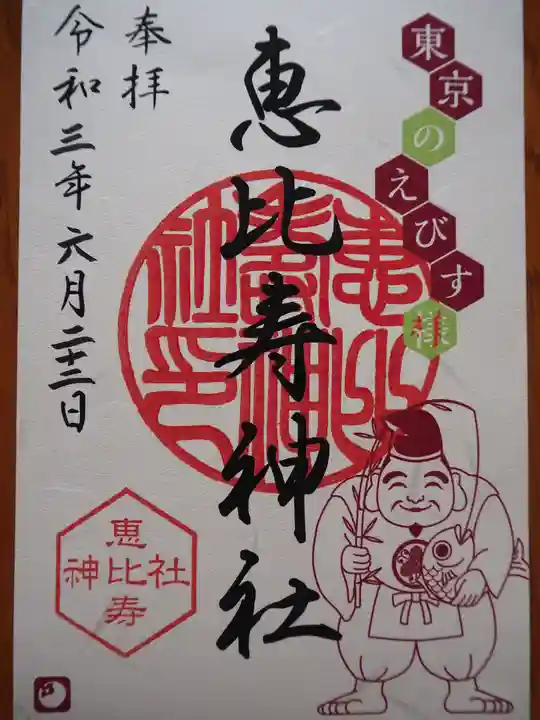 東京のえびす様
恵比寿神社
奉拝
令和三年六月二十二日
恵
神比社
寿